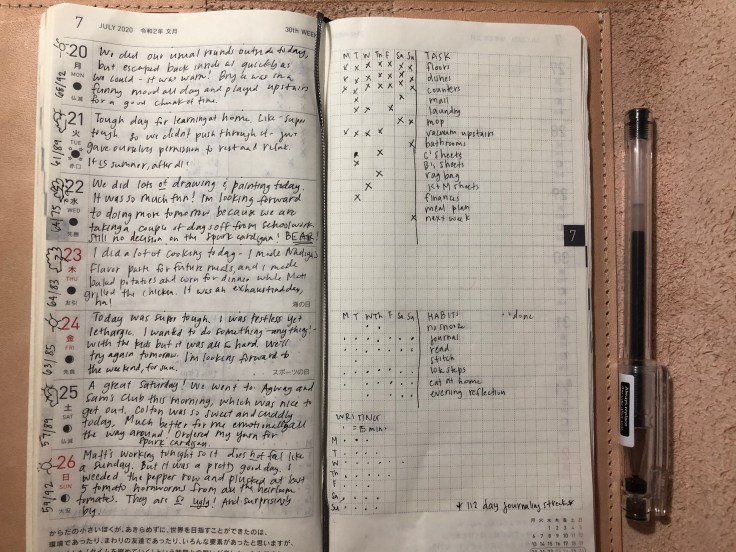 7
JULY 2020 令和2年 文月
30th WEEK
20
月
MON
仏滅
68/92
We did our usual rounds outside today,
but escaped back inside as quickly as
we could - it was warm! Boy was in a
funny mood all day and played upstairs
for a good chunk of time.
21
火
TUE
赤口
61/89
Tough day for learning at home. Like - super
tough so we didn't push through it - just
gave ourselves permission to rest and relax.
It is summer, after all!
22
水
WED
先勝
64/75
We did lots of drawing & painting today.
It was so much fun! I'm looking forward
to doing more tomorrow because we are
taking a couple of days off from schoolwork.
Still no decision on the spark cardigan! BEAR!
23
木
THU
友引
64/83
I did a lot of cooking today - I made Nadiya's
Flavor paste for future meals, and I made
baked potatoes and corn for dinner while Matt
grilled the chicken. It was an exhausting day,
ha!
海の日
24
金
FRI
先負
63/85
Today was super tough. I was restless yet
lethargic. I wanted to do something - anything! -
with the kids but it was all so hard. We'll
try again tomorrow. I'm looking forward to
the weekend, for sure.
スポーツの日
25
土
SAT
仏滅
57/89
A great Saturday! We went to Agway and
Sam's Club this morning, which was nice to
get out. Colton was so sweet and cuddly
today. Much better for me emotionally all
the way around! Ordered my yarn for
spark cardigan.
26
日
SUN
大安
59/92
Matt's working tonight so it does not feel like
a Sunday. But it was a pretty good day. I
weeded the pepper row and plucked at least
5 tomato hornworms from all the heirloom
tomatoes. They are so ugly! And surprisingly
big.
からだの小さいぼくが、あきらめずに、世界を目指すことができたのは、
環境であったり、まわりの友達であったり、いろんな要素があったと思いますが、
M T W Th F Sa Su TASK
floors
dishes
counters
mail
laundry
mop
vacuum upstairs
bathrooms
C's sheets
B's sheets
rag bag
K+M sheets
finances
meal plan
next week
7
M T W Th F Sa Su HABIT • = done
no snooze
journal
read
stitch
10k steps
eat at home
evening reflection
WRITING
• = 15 min.
M
T
W
Th
F
Sa
Su
* 112 day journaling streak *